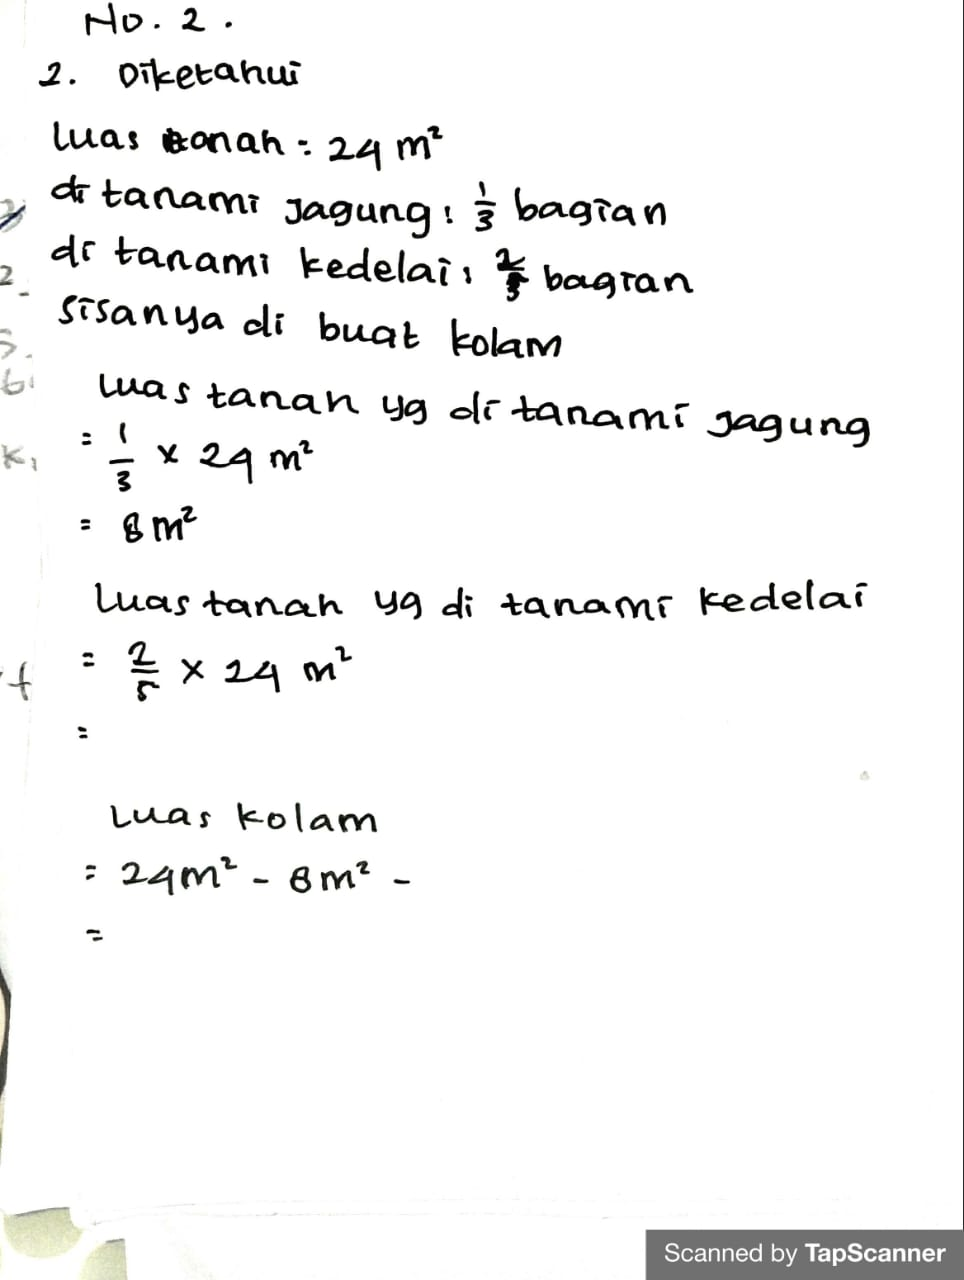 No. 2.
2. Diketahui
luas tanah = 24 m²
di tanami jagung : 1/3 bagian
di tanami kedelai : bagian
sisanya di buat kolam
Luas tanah yg di tanami jagung
= 1/3 x 24 m²
= 8 m²
Luas tanah yg di tanami kedelai
= 2/5 x 24 m²
=
Luas kolam
= 24m² - 8m² -
=
Scanned by TapScanner